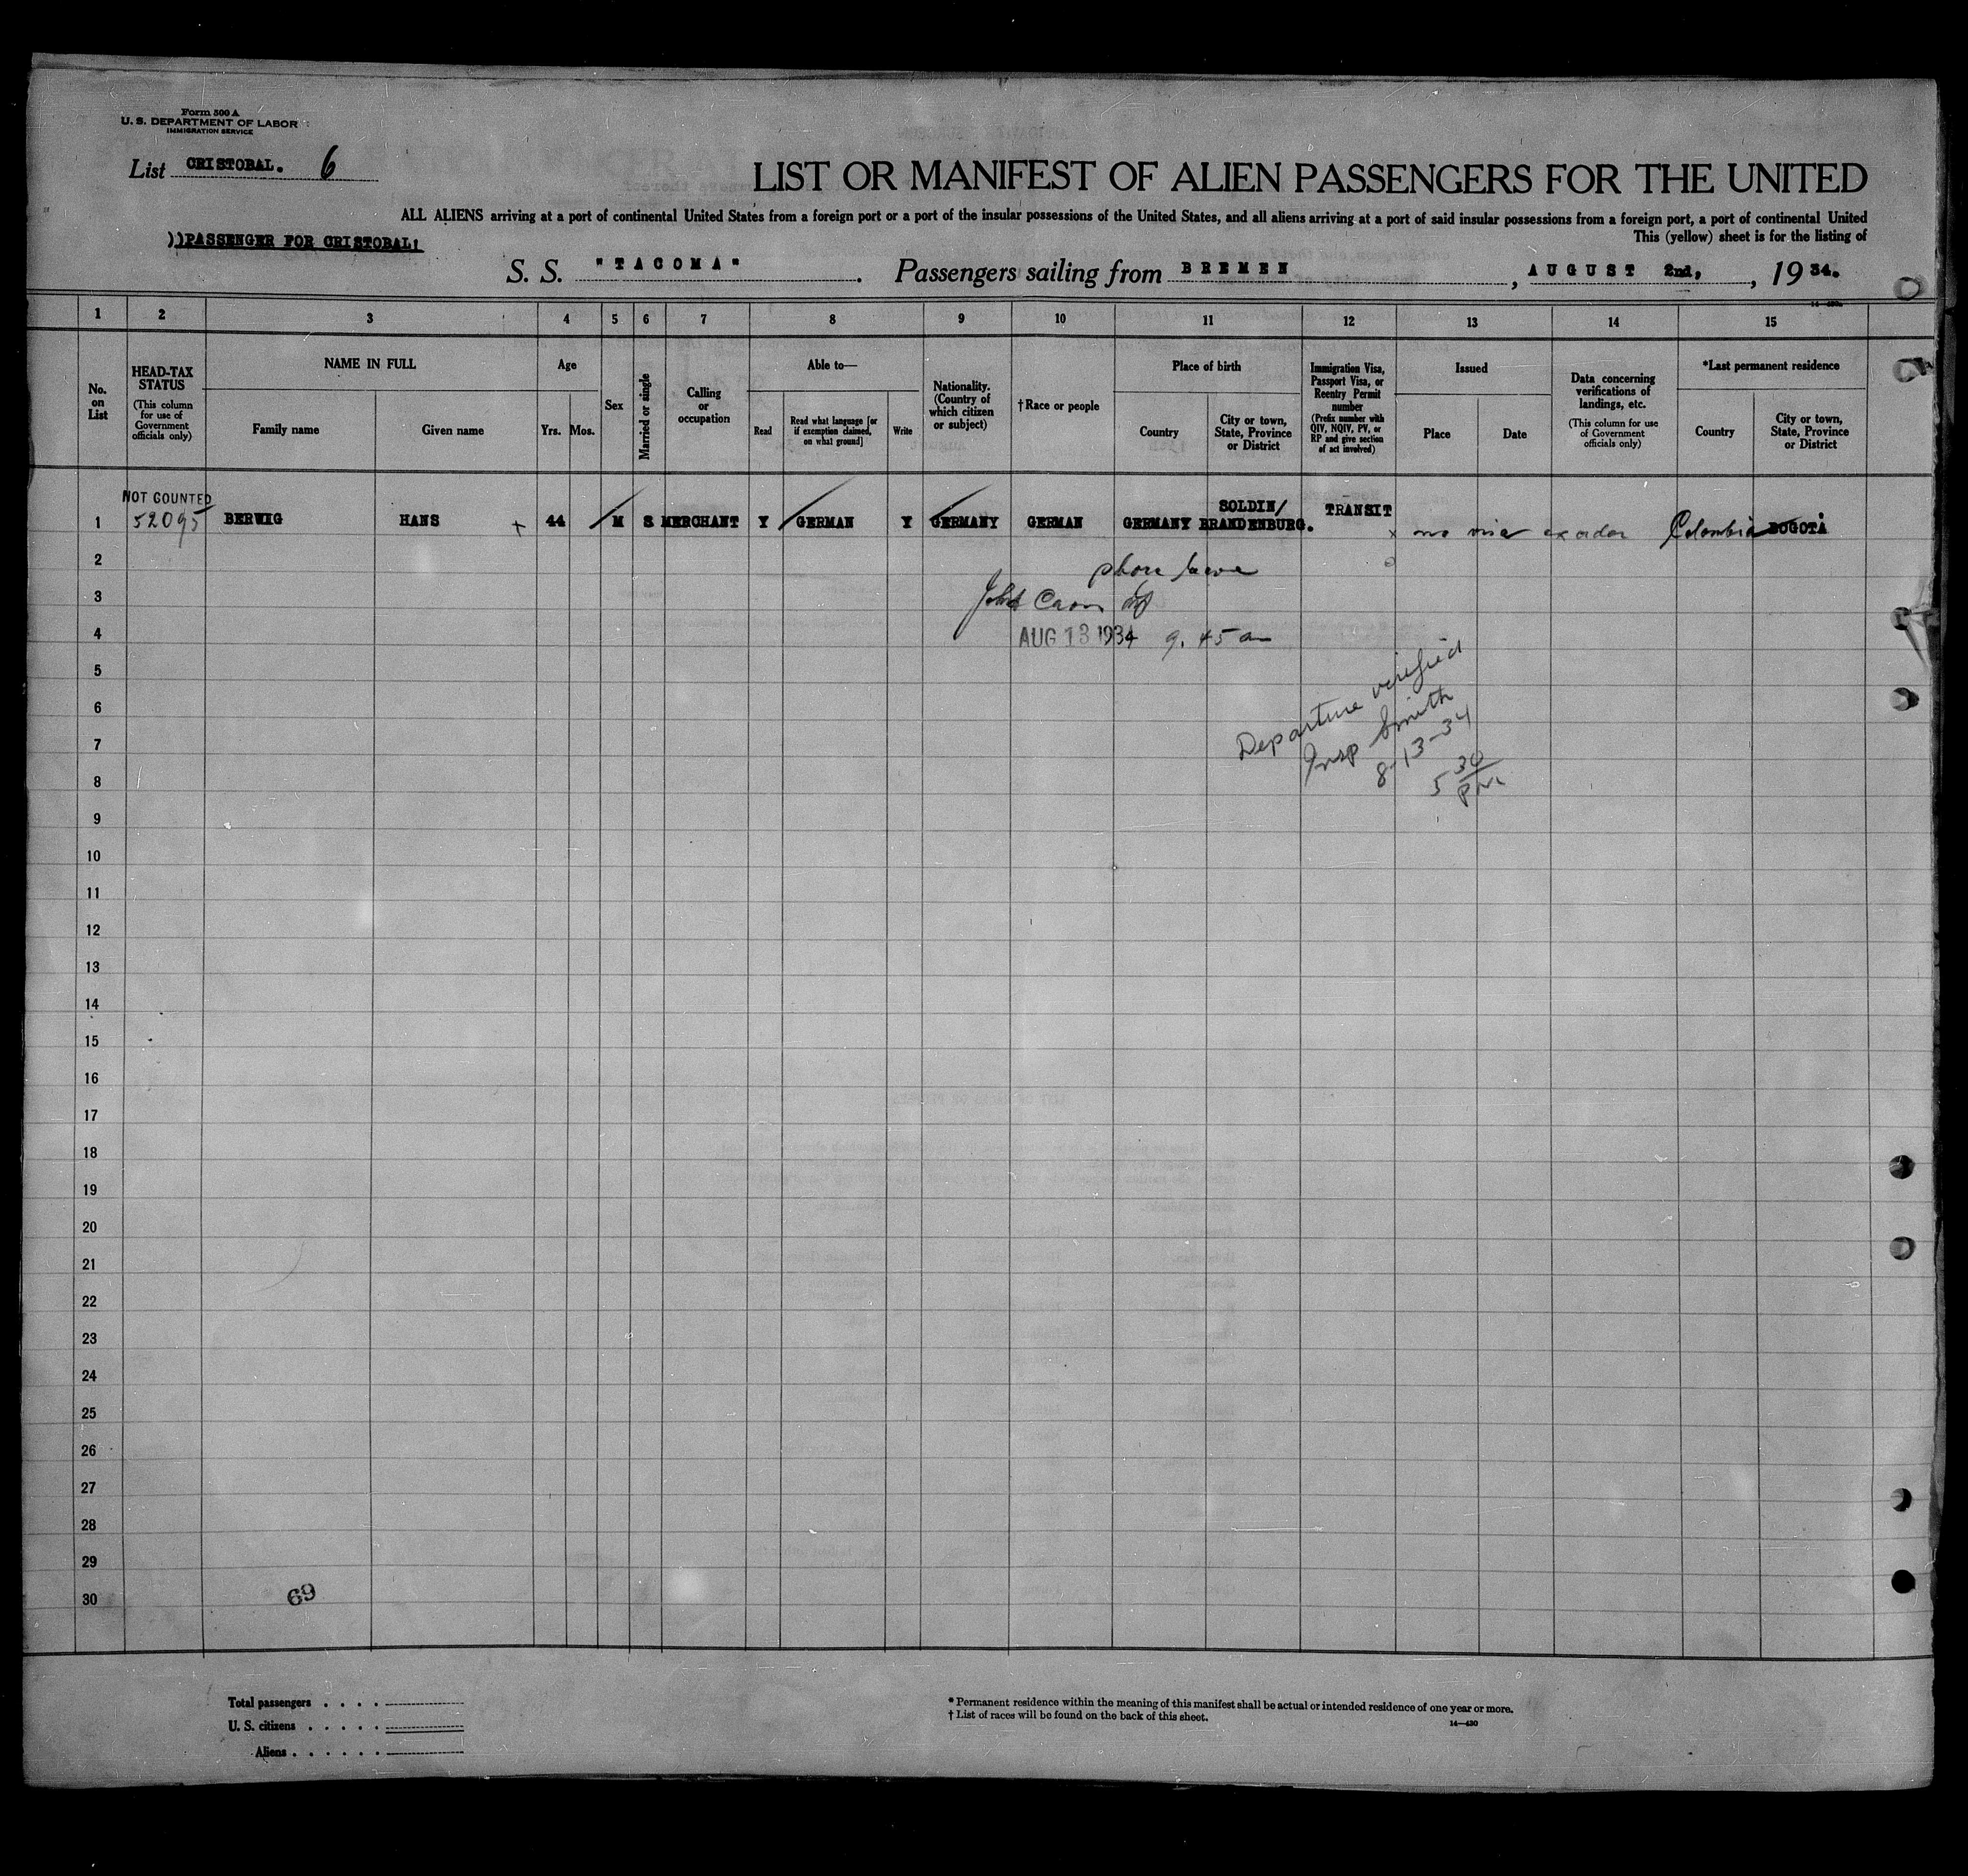 Form 500 A
U. S. DEPARTMENT OF LABOR
IMMIGRATION SERVICE
List CRISTOBAL. 6
LIST OR MANIFEST OF ALIEN PASSENGERS FOR THE UNITED
ALL ALIENS arriving at a port of continental United States from a foreign port or a port of the insular possessions of the United States, and all aliens arriving at a port of said insular possessions from a foreign port, a port of continental United
This (yellow) sheet is for the listing of
))PASSENGER FOR CRISTOBAL:
S. S. "TACOMA". Passengers sailing from BREMEN, AUGUST 2nd, , 1934.
1 2 3 4 5 6 7 8 9 10 11 12 13 14 15
No. on List
HEAD-TAX STATUS (This column for use of Government officials only)
NAME IN FULL
Family name Given name
Age
Yrs. Mos.
Sex
Married or single
Calling or occupation
Able to—
Read
Read what language [or if exemption claimed, on what ground]
Write
Nationality. (Country of which citizen or subject)
†Race or people
Place of birth
Country
City or town, State, Province or District
Immigration Visa, Passport Visa, or Reentry Permit number (Prefix number with QIV, NQIV, PV, or RP and give section of act involved)
Issued
Place Date
Data concerning verifications of landings, etc. (This column for use of Government officials only)
*Last permanent residence
Country
City or town, State, Province or District
NOT COUNTED
1 52095 BERWIG HANS 44 M S MERCHANT Y GERMAN Y GERMANY GERMAN GERMANY SOLDIN/ BRANDENBURG. TRANSIT x no visa Colombia BOGOTÁ
2 phone
3
4 AUG 13 1934 9.45 am
5 Departure verified
6 Insp Smith
7 8-13-34
8 5 30 pm
9
10
11
12
13
14
15
16
17
18
19
20
21
22
23
24
25
26
27
28
29
30 69
Total passengers . . . .
U. S. citizens . . . . .
Aliens . . . . . .
* Permanent residence within the meaning of this manifest shall be actual or intended residence of one year or more.
† List of races will be found on the back of this sheet.
14—430